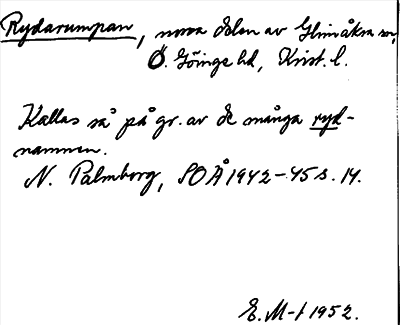 Rydarumpan, norra delen av Glimåkra sn,
Ö. Göinge hd, Krist. l.
Kallas så på gr. av de många ryd-
namnen.
N. Palmborg, SOÅ 1942-45 s. 14.
E. M-t 1952.